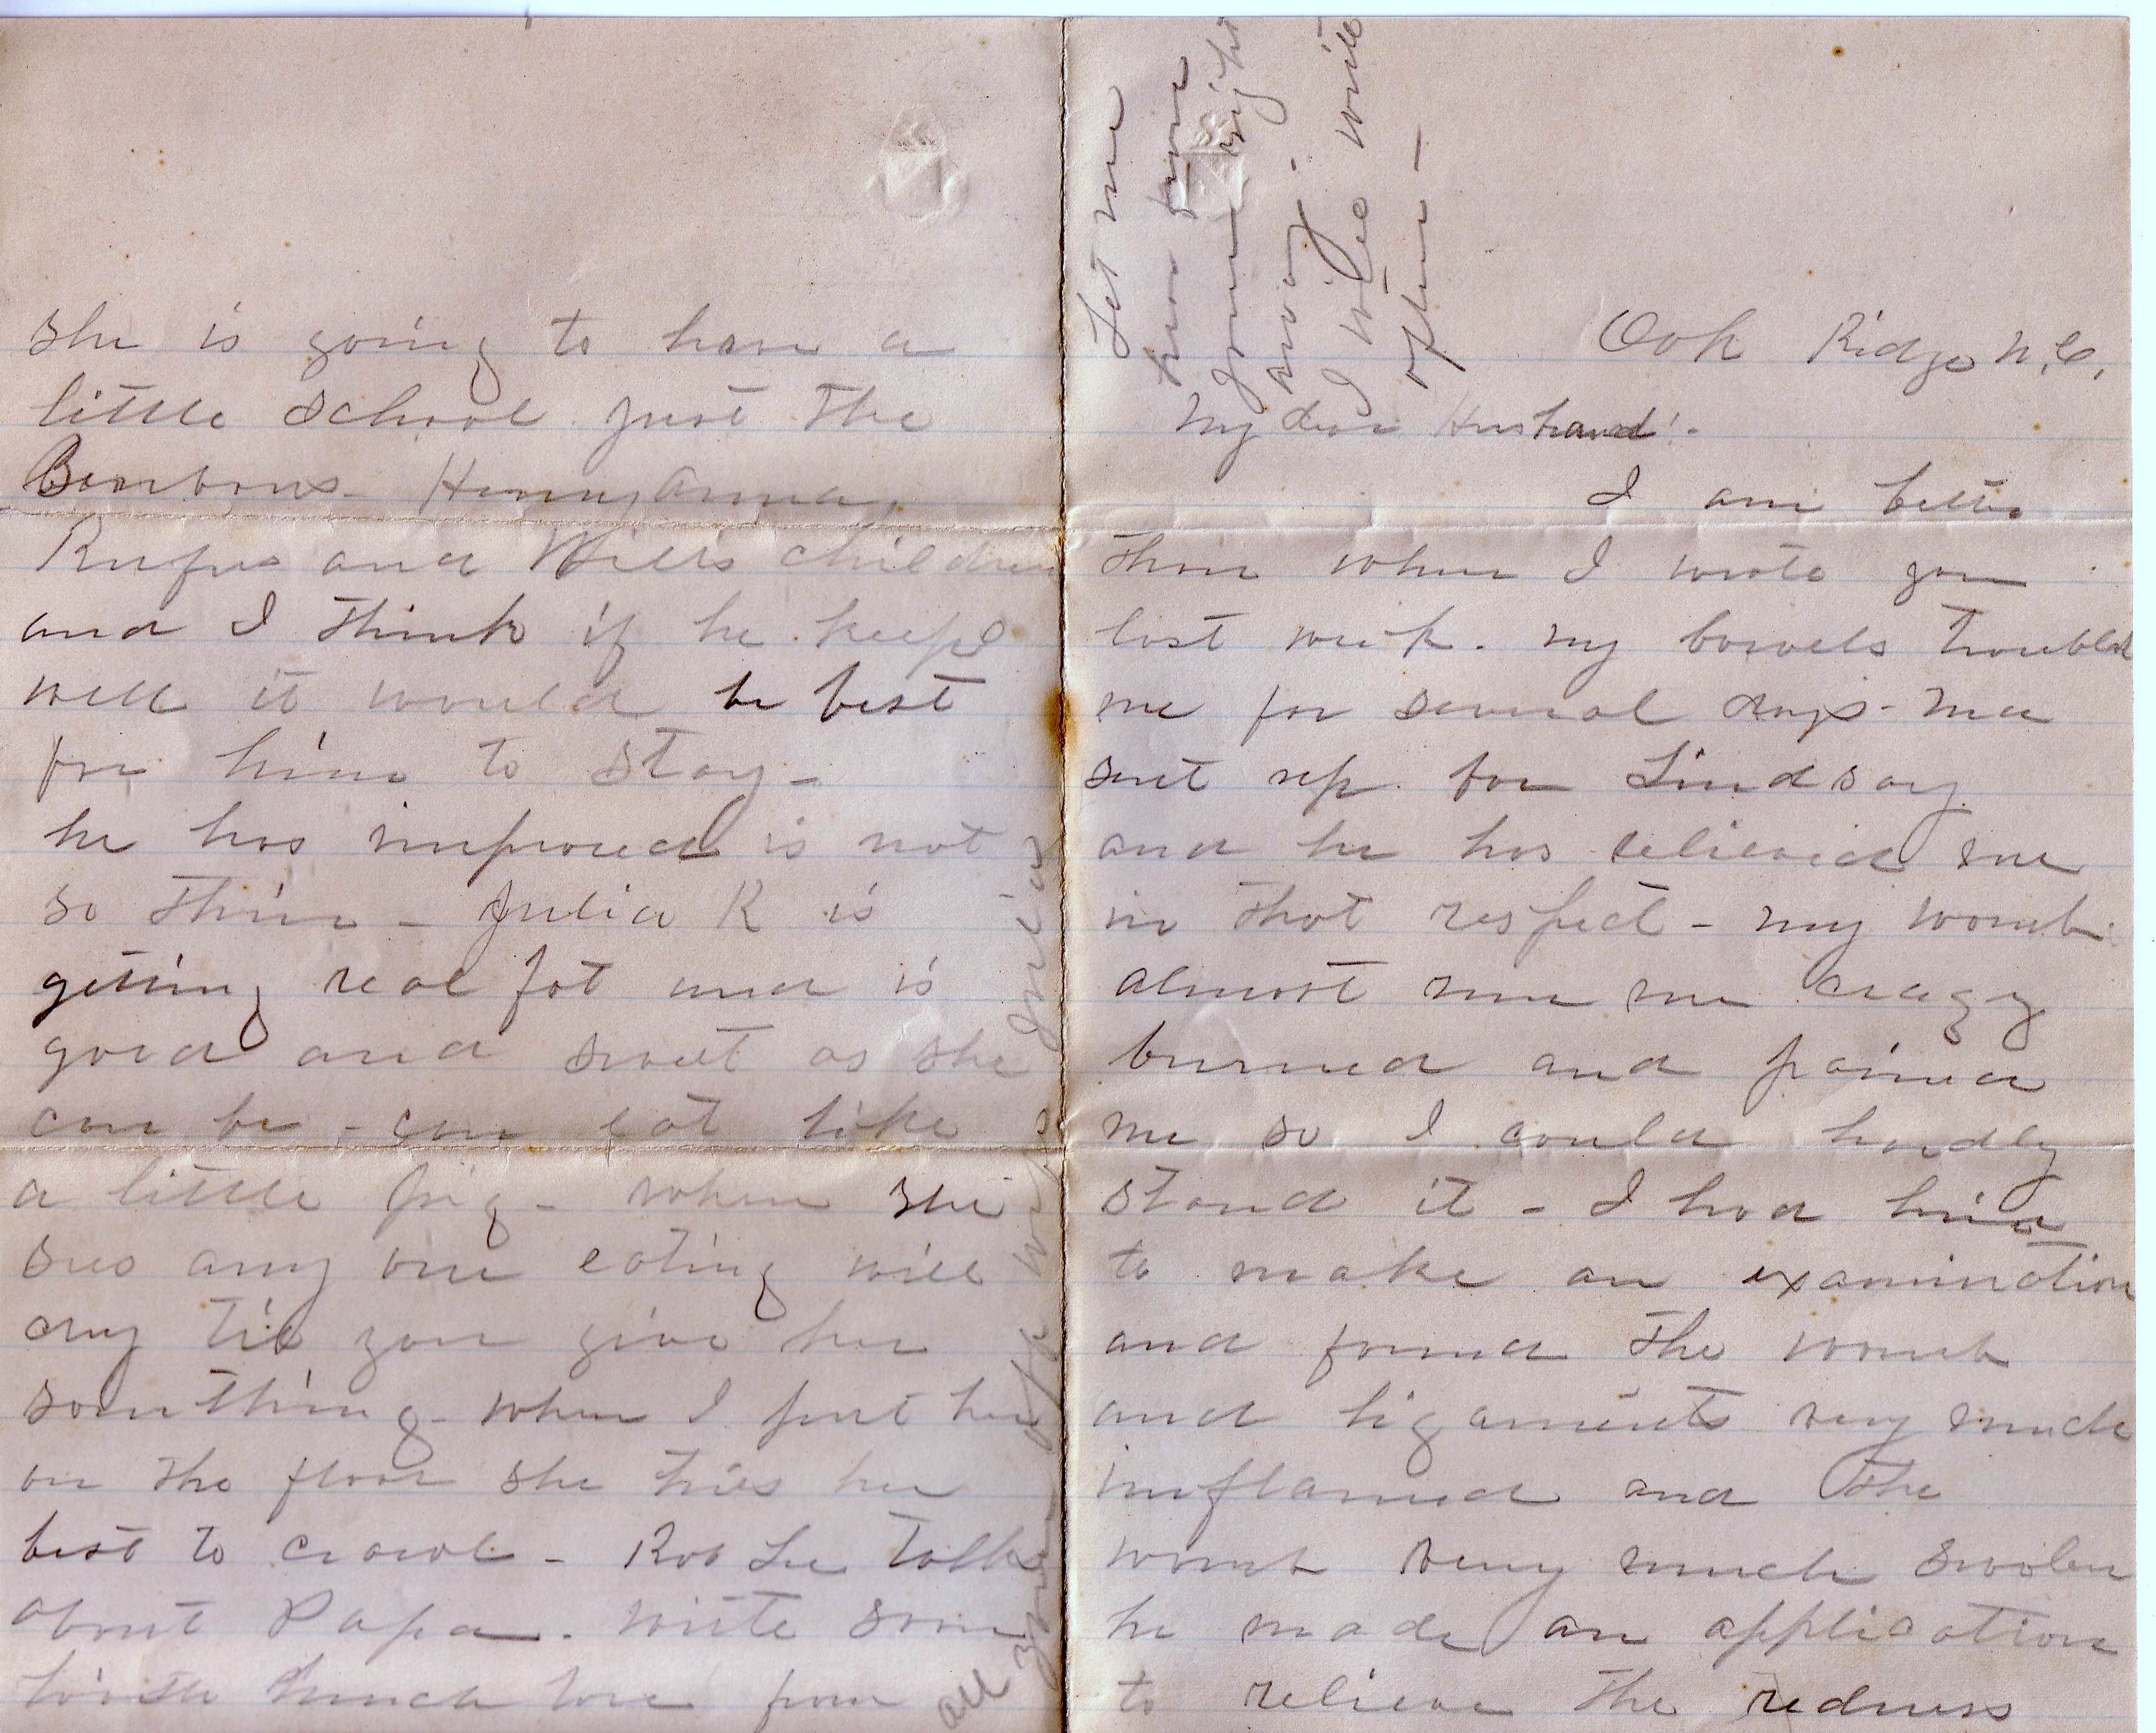 Oak Ridge N.C.
My dear Husband!-
I am better
than when I wrote you
last week. my bowels troubled
me for several days - Ma
sent up for Lindsay
and he has relieved me
in that respect - my womb
almost run me crazy
burned and pained
me so I could hardly
stand it - I had him
to make an examination
and found the womb
and ligaments very much
inflamed and the
womb very much swolen
he made an application
to relieve the redness
she is going to have a
little school just the
Henry Anna,
Rufus and Will's children
and I think if he keeps
well it would be best
for him to stay -
he has improved is not
so thin - Julia K is
getting real fat and is
good and sweet as she
can be - can eat like
a little pig - when she
sees any one eating will
cry til you give her
something - when I put her
on the floor she tries her
best to crawl - Rob Lee talks
about Papa - write soon
with much love from
all your wife
Let me
hear from
you right
away.
I will write
often -